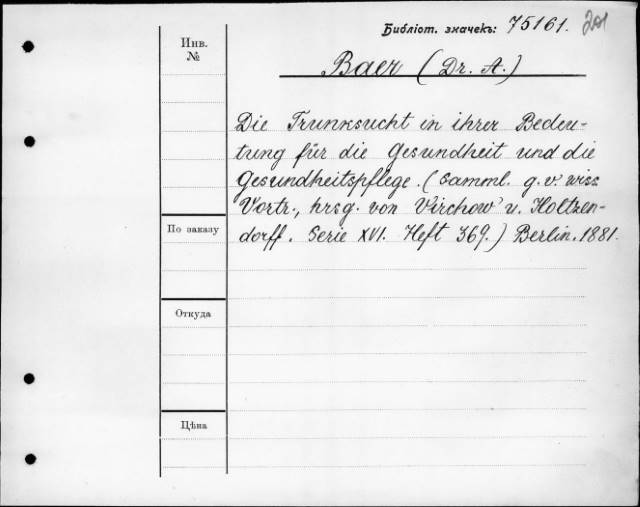 Библіот. значекъ: 75161.
Инв.
№
Baer (Dr. A.)
Die Trunksucht in ihrer Bedeu-
tung für die Gesundheit und die
Gesundheitspflege. (Samml. g. v. wiss
Vortr., hrsg. von Virchow u. Holtzen-
dorff. Serie XVI. Heft 369.) Berlin. 1881.
По заказу
Откуда
Цѣна